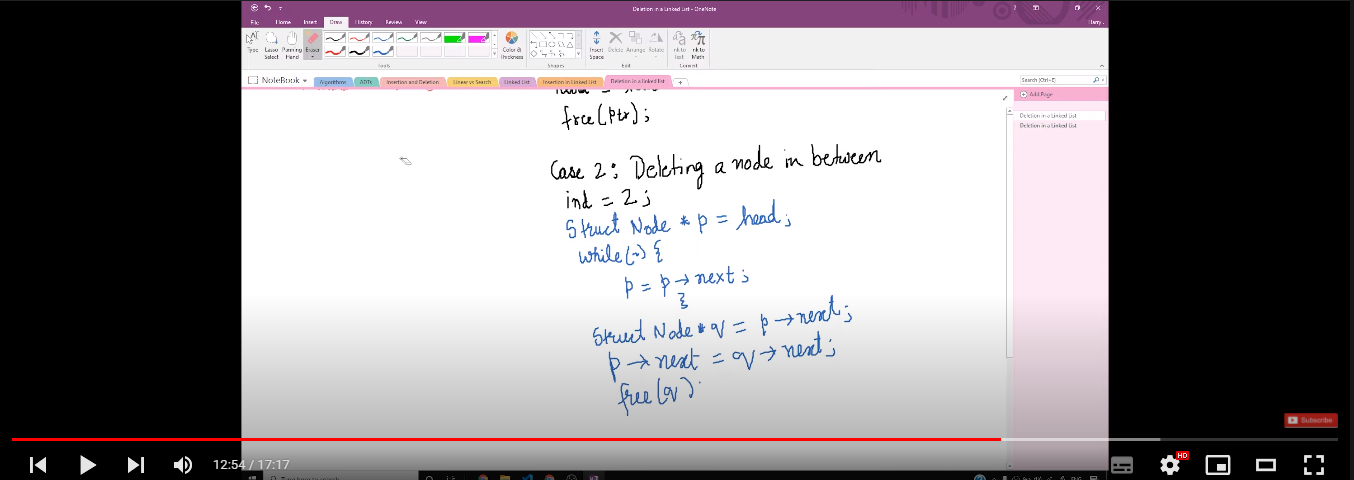 Deletion in a Linked List - OneNote
?
Harry .
File Home Insert Draw History Review View
Type
Lasso Select
Panning Hand
Eraser
Color & Thickness
Insert Space
Delete
Arrange
Rotate
Ink to Text
Ink to Math
Tools
Shapes
Edit
Convert
NoteBook
Algorithms
ADTs
Insertion and Deletion
Linear vs Search
Linked List
Insertion in Linked List
Deletion in a linked list
+
Search (Ctrl+E)
Add Page
Deletion in a Linked List
Deletion in a Linked List
free(ptr);
Case 2: Deleting a node in between
ind = 2;
Struct Node * p = head;
while(~) {
p = p → next;
}
Struct Node * q = p → next;
p → next = q → next;
free(q)
Subscribe
12:54 / 17:17
HD